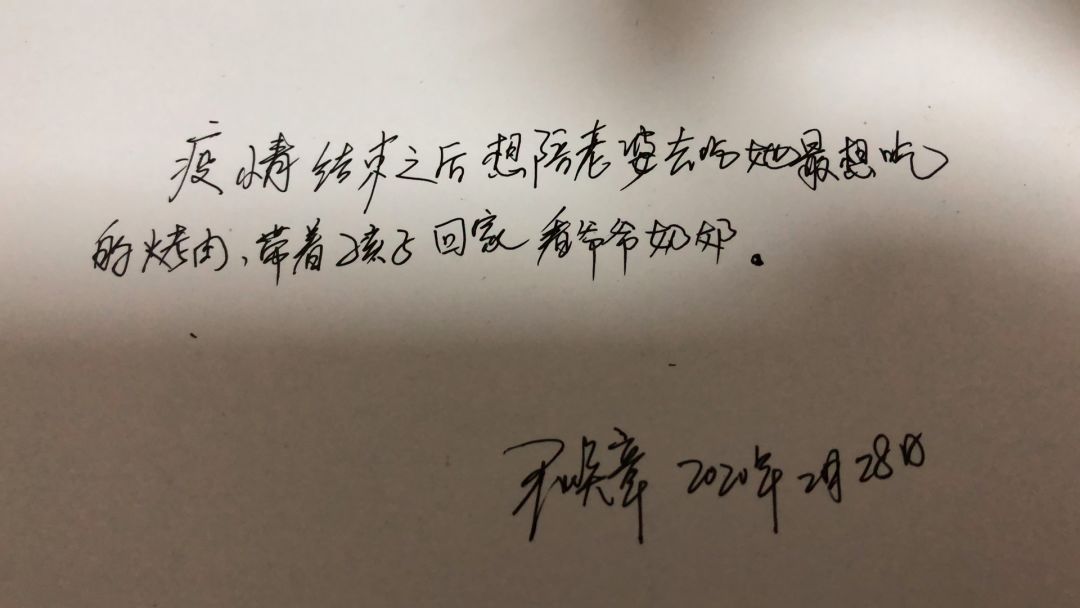 疫情结束之后想陪老婆去吃她最想吃
的烤肉,带着孩子回家看爷爷奶奶。
2020年2月28日